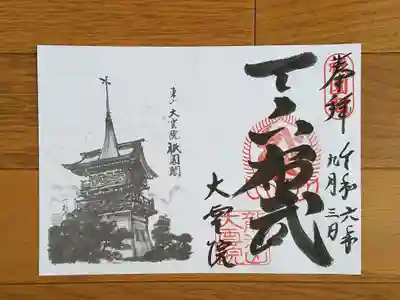 奉拝
令和六年
九月三日
天下布武
大雲院
東山 大雲院 祇園閣